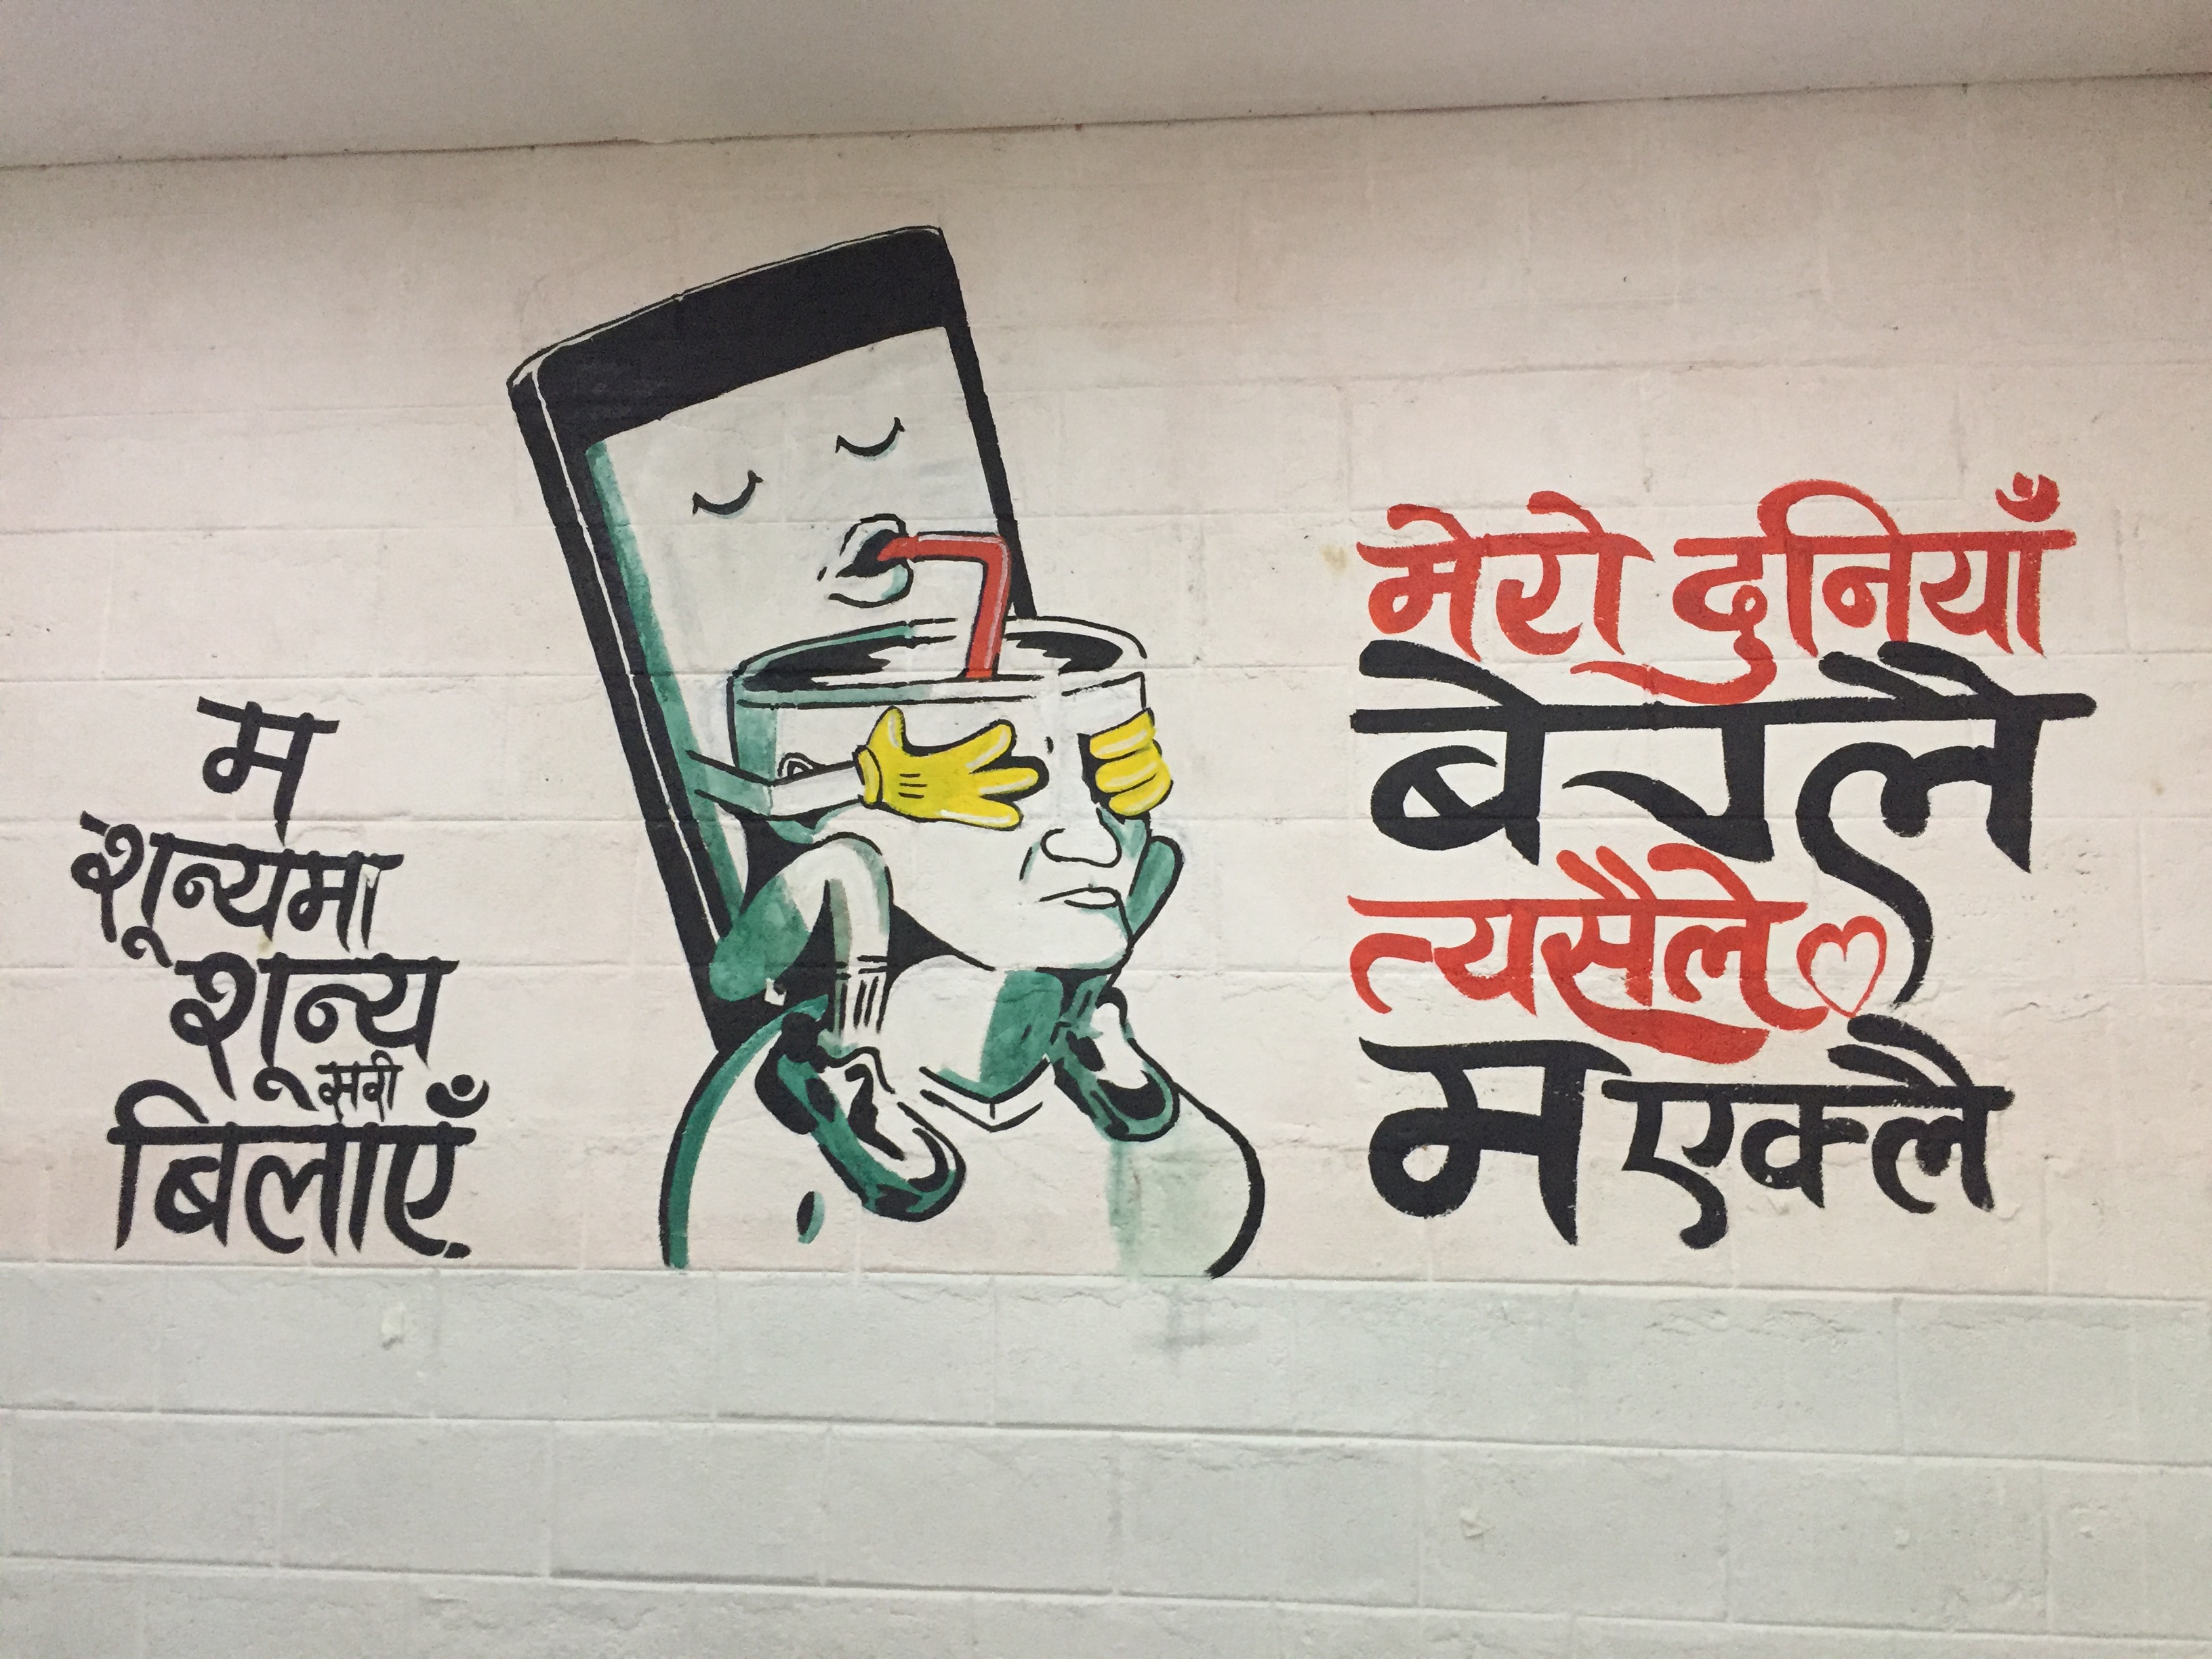 म
शून्यमा
शून्य
सरी
बिलाएँ
मेरो दुनियाँ
बेग्लै
त्यसैले
म एक्लै